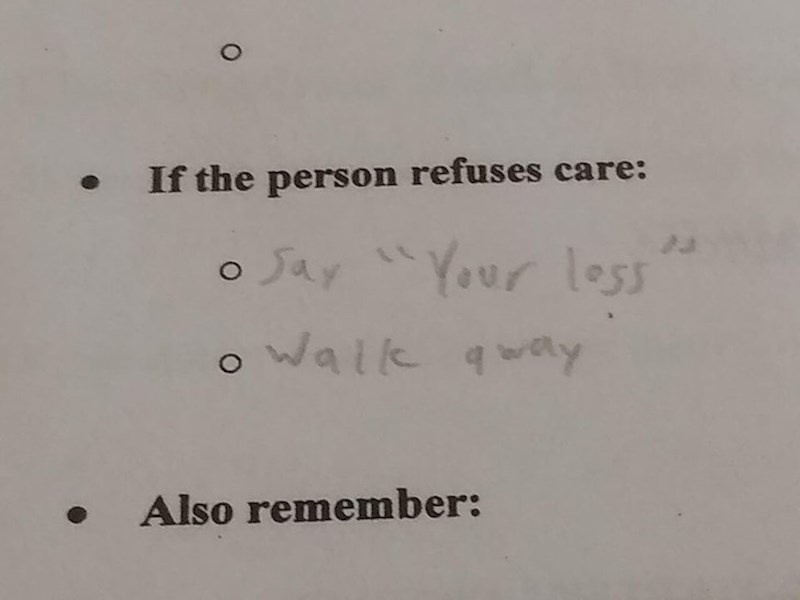 If the person refuses care:
Say “Your loss”
Walk away
Also remember: